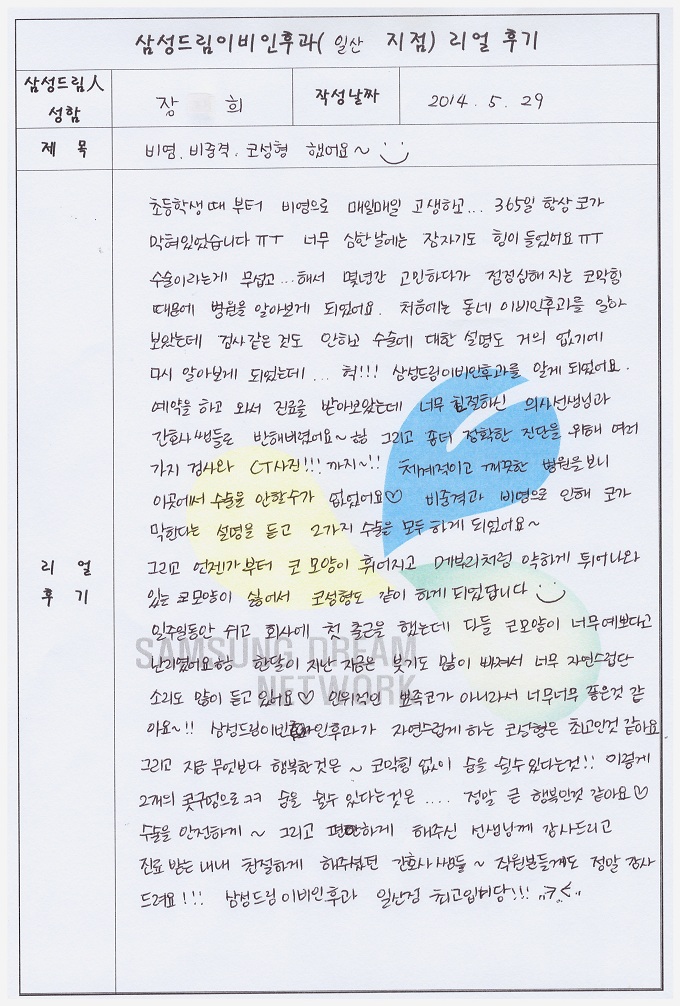 삼성드림이비인후과( 일산 지점) 리얼 후기
삼성드림人 성함
장 희
작성날짜
2014. 5. 29
제 목
비염. 비중격. 코성형 했어요~
리 얼 후 기
초등학생때 부터 비염으로 매일매일 고생하고... 365일 항상 코가
막혀있었습니다ㅠㅜ 너무 심한날에는 잠자기도 힘이 들었어요ㅠㅜ
수술이라는게 무섭고...해서 몇년간 고민하다가 점점심해 지는 코막힘
때문에 병원을 알아보게 되었어요. 처음에는 동네 이비인후과를 알아
보았는데 검사같은것도 안하고 수술에 대한 설명도 거의 없기에
다시 알아보게 되었는데... 헉!!! 삼성드림이비인후과를 알게 되었어요.
예약을 하고 와서 진료를 받아보았는데 너무 친절하신 의사선생님과
간호사쌤들로 반해버렸어요~ㅎㅎ 그리고 좀더 정확한 진단을 위해 여러
가지 검사와 CT사진!!! 까지~!! 체계적이고 깨끗한 병원을 보니
이곳에서 수술을 안할수가 없었어요♡ 비중격과 비염으로 인해 코가
막힌다는 설명을 듣고 2가지 수술을 모두 하게 되었어요~
그리고 언젠가부터 코 모양이 휘어지고 메부리처럼 약하게 튀어나와
있는 코모양이 싫어서 코성형도 같이 하게 되었답니다
일주일동안 쉬고 회사에 첫 출근을 했는데 다들 코모양이 너무예쁘다고
난리였어요ㅎㅎ 한달이 지난 지금은 붓기도 많이 빠져서 너무 자연스럽단
소리도 많이 듣고있어요♡ 인위적인 뾰족코가 아니라서 너무너무 좋은것 같
아요~!! 삼성드림이비인후과가 자연스럽게 하는 코성형은 최고인것 같아요
그리고 지금 무엇보다 행복한것은 ~ 코막힘 없이 숨을 쉴수있다는것!! 이렇게
2개의 콧구멍으로ㅋㅋ 숨을 쉴수 있다는것은.... 정말 큰 행복인것 같아요♡
수술을 안전하게 ~ 그리고 편안하게 해주신 선생님께 감사드리고
진료 받는내내 친절하게 해주셨던 간호사쌤들~ 직원분들께도 정말 감사
드려요!!! 삼성드림이비인후과 일산점 최고입니당!!!
SAMSUNG DREAM
NETWORK